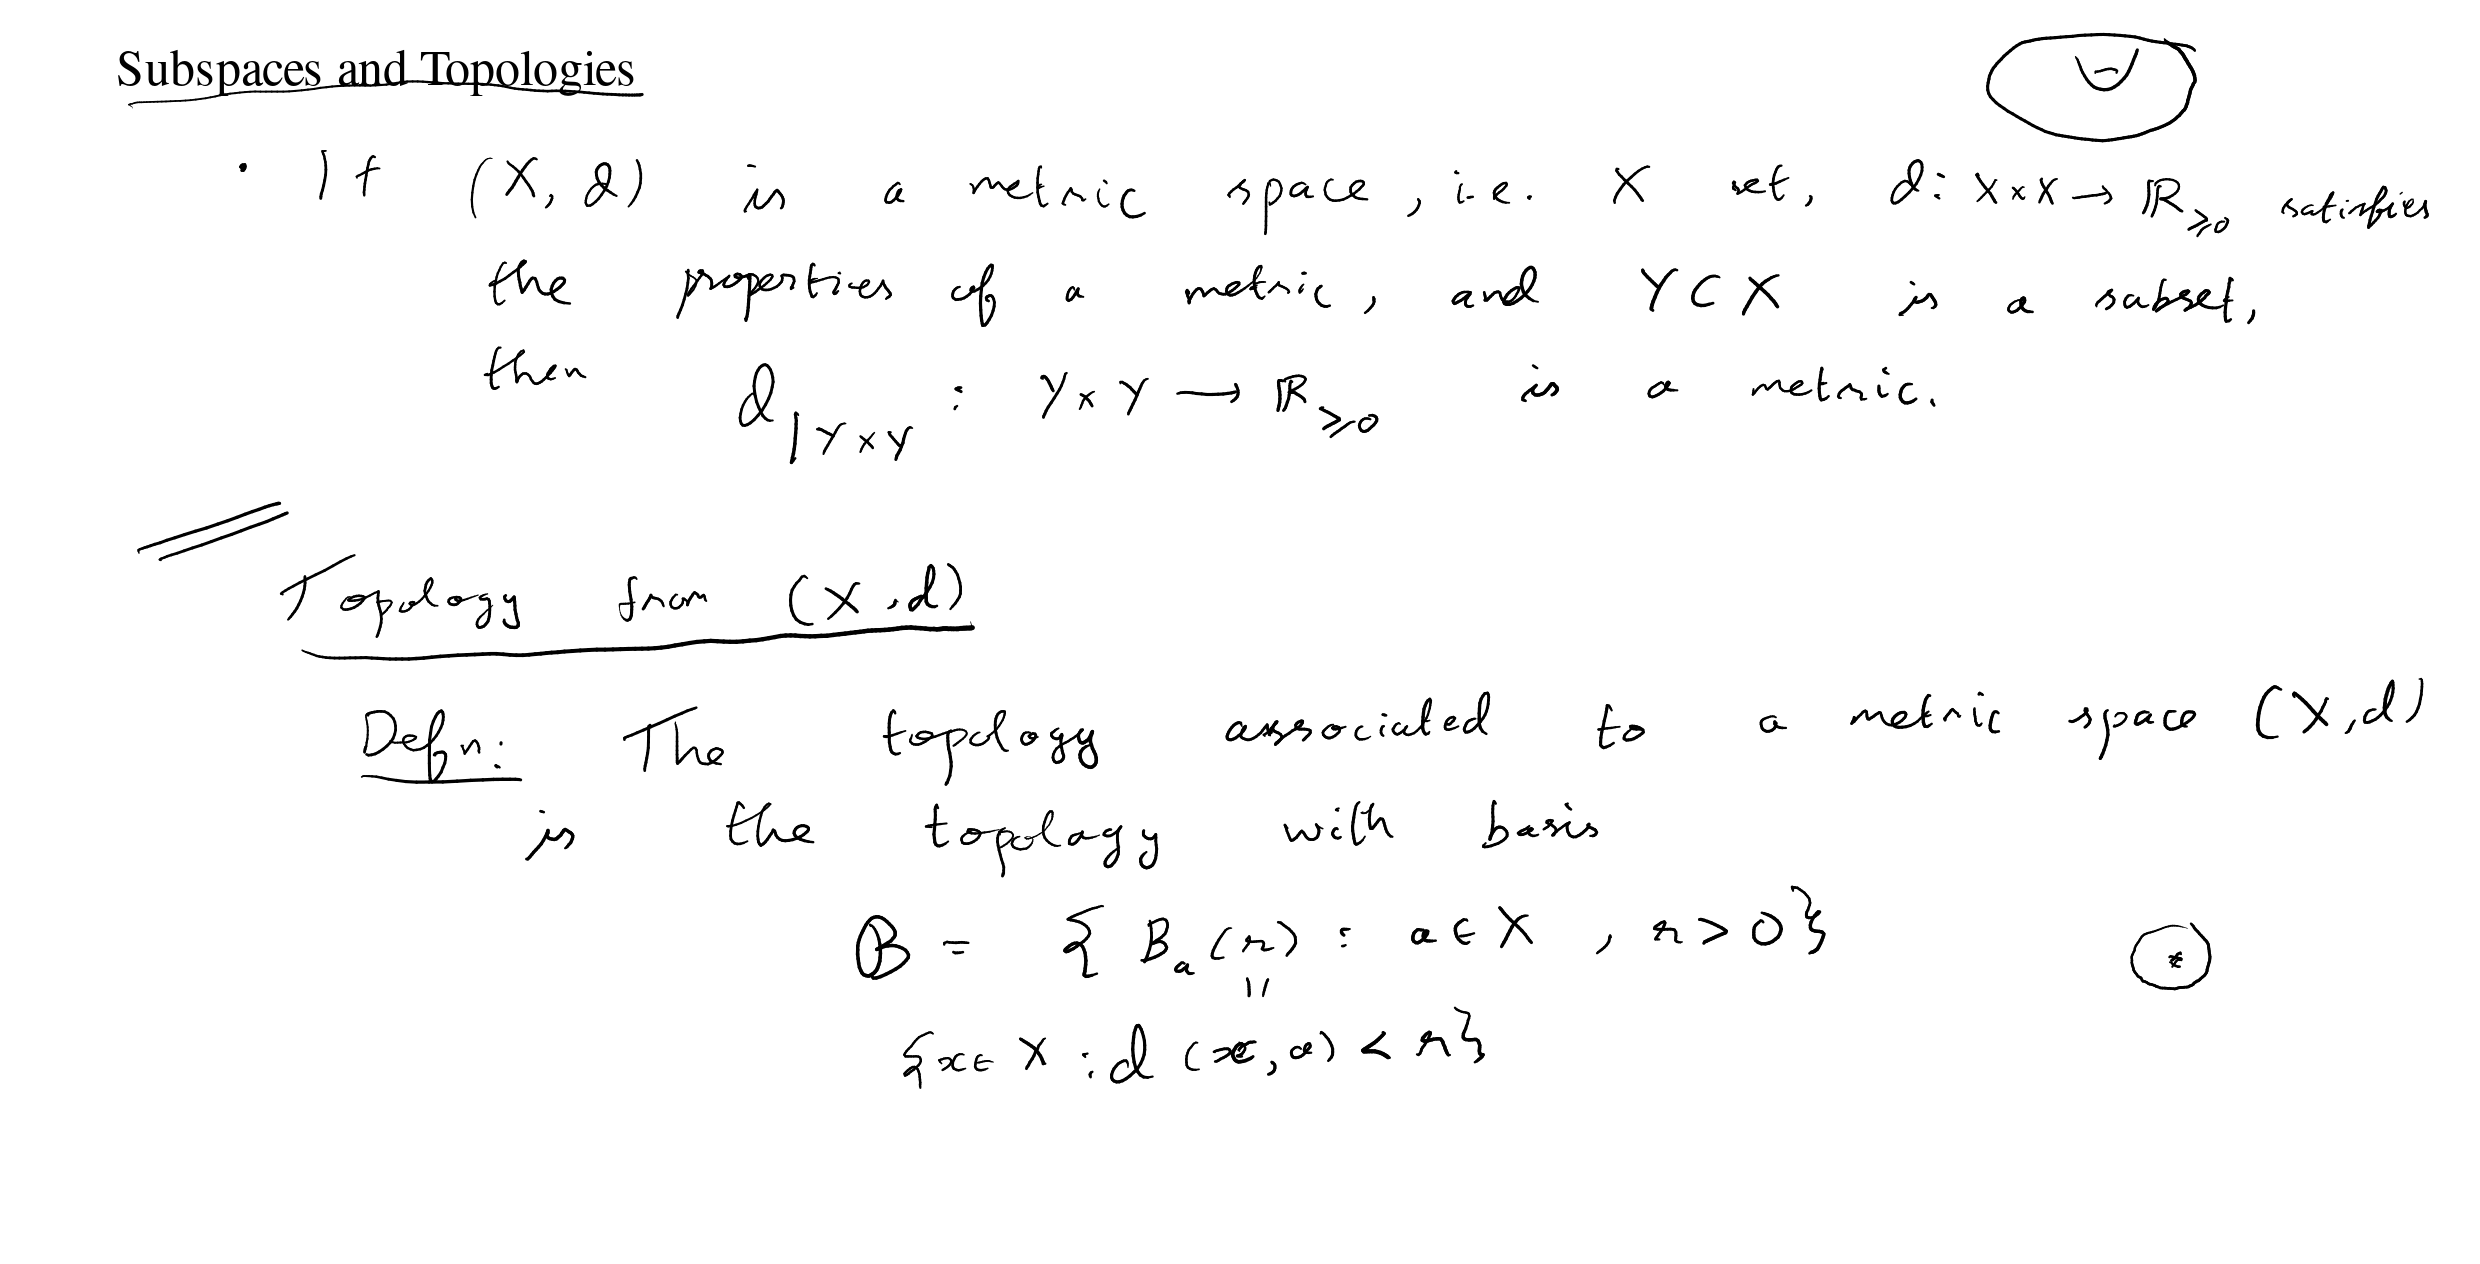 Subspaces and Topologies
· If (X, d) is a metric space, i.e. X set, d: X×X → ℝ≥0 satisfies
the properties of a metric, and Y ⊂ X is a subset,
then d|Y×Y : Y×Y → ℝ≥0 is a metric.
Topology from (X, d)
Defn: The topology associated to a metric space (X, d)
is the topology with basis
𝔹 = { Bₐ(r) : a ∈ X , r > 0}
=
{x ∈ X : d(x, a) < r}